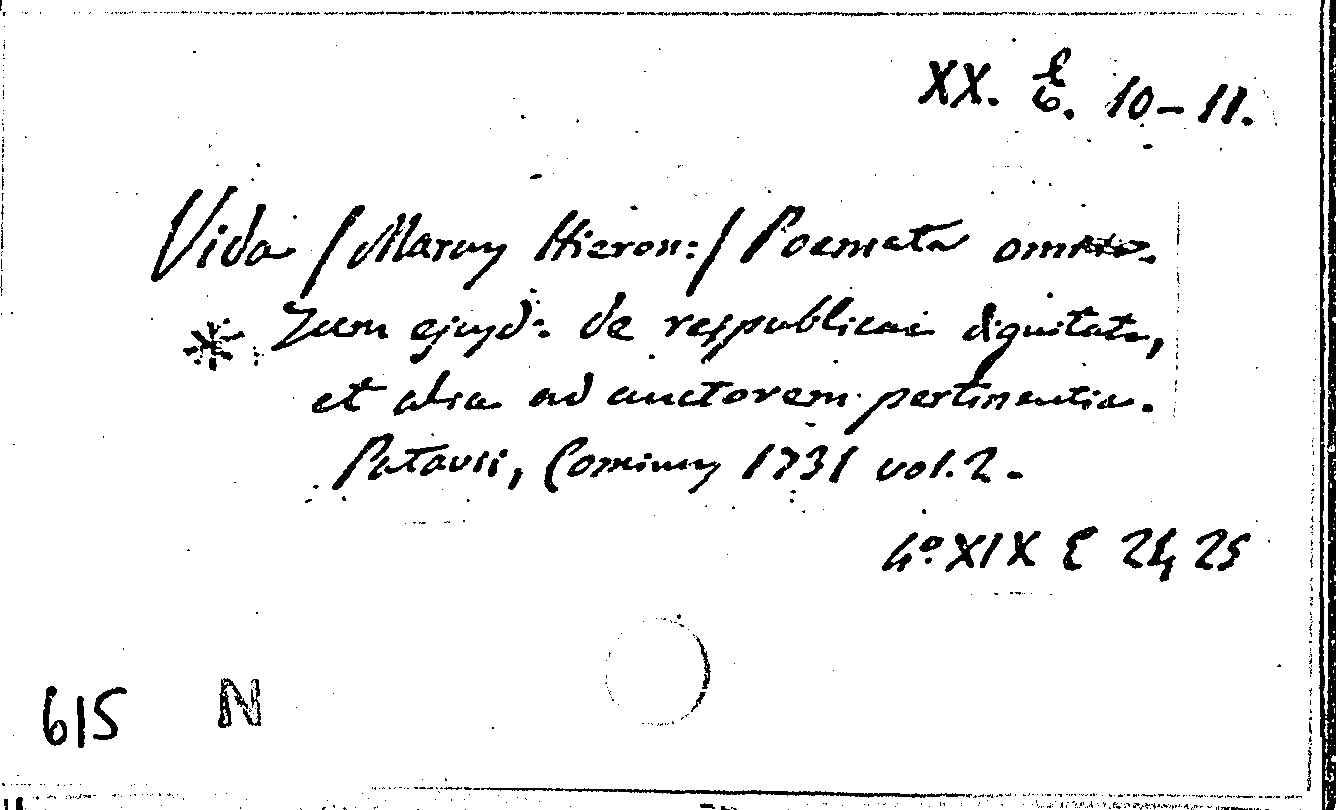 XX. E/6. 10-11.
Vida /Marcus Hieron:/ Poemata omnia.
* Tum ejusd: de reipublicae dignitate,
et alia ad auctorem pertinentia.
Patavii, Cominus 1731 vol. 2.
4º. XIX E 24, 25
615 N